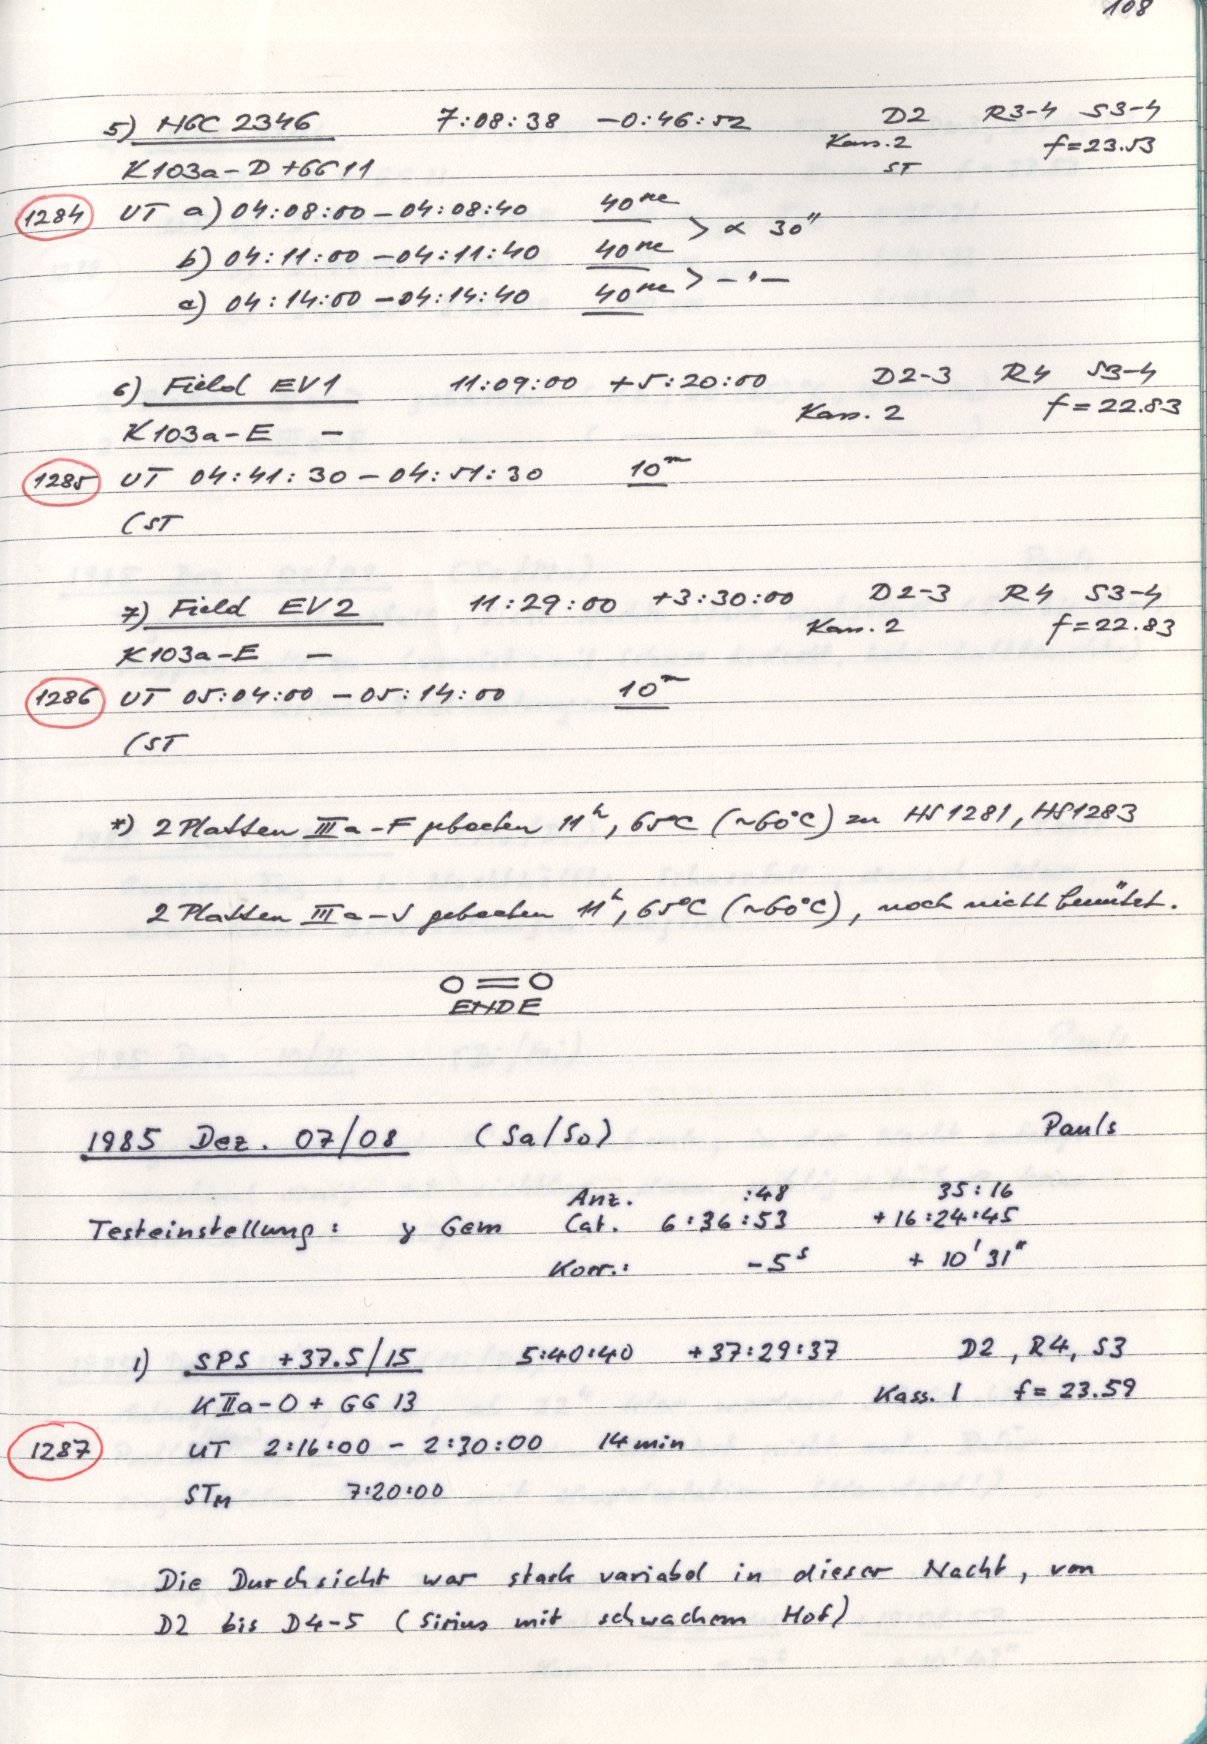 108
5) NGC 2346 7:08:38 -0:46:52 D2 R3-4 S3-4
Kass.2 f=23.53
K103a-D+GG11 ST
1284 UT a) 04:08:00-04:08:40 40sec
> α 30"
b) 04:11:00-04:11:40 40sec
> -"-
c) 04:14:00-04:14:40 40sec
6) Field EV1 11:09:00 +5:20:00 D2-3 R4 S3-4
Kass. 2 f=22.83
K103a-E -
1285 UT 04:41:30-04:51:30 10m
(ST
7) Field EV2 11:29:00 +3:30:00 D2-3 R4 S3-4
Kass. 2 f=22.83
K103a-E -
1286 UT 05:04:00-05:14:00 10m
(ST
*) 2 Platten IIIa-F gebacken 11h, 65°C (~60°C) zu HS1281, HS1283
2 Platten IIIa-J gebacken 11h, 65°C (~60°C), noch nicht benützt.
O=O
ENDE
1985 Dez. 07/08 (Sa/So) Pauls
Anz. :48 35:16
Testeinstellung: γ Gem Cat. 6:36:53 +16:24:45
Korr.: -5s +10'31"
1) SPS +37.5/15 5:40:40 +37:29:37 D2, R4, S3
KIIa-O + GG 13 Kass. 1 f=23.59
1287 UT 2:16:00 - 2:30:00 14min
STM 7:20:00
Die Durchsicht war stark variabel in dieser Nacht, von
D2 bis D4-5 (Sirius mit schwachem Hof)